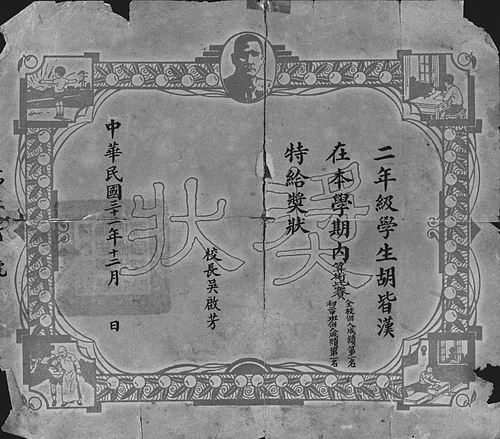 獎狀
二年級學生胡皆漢
在本學期內算術比賽
全校個人成績第一名
初二甲班個人成績第一名
特給獎狀
校長吳啟芳
中華民國三十一年十二月 日